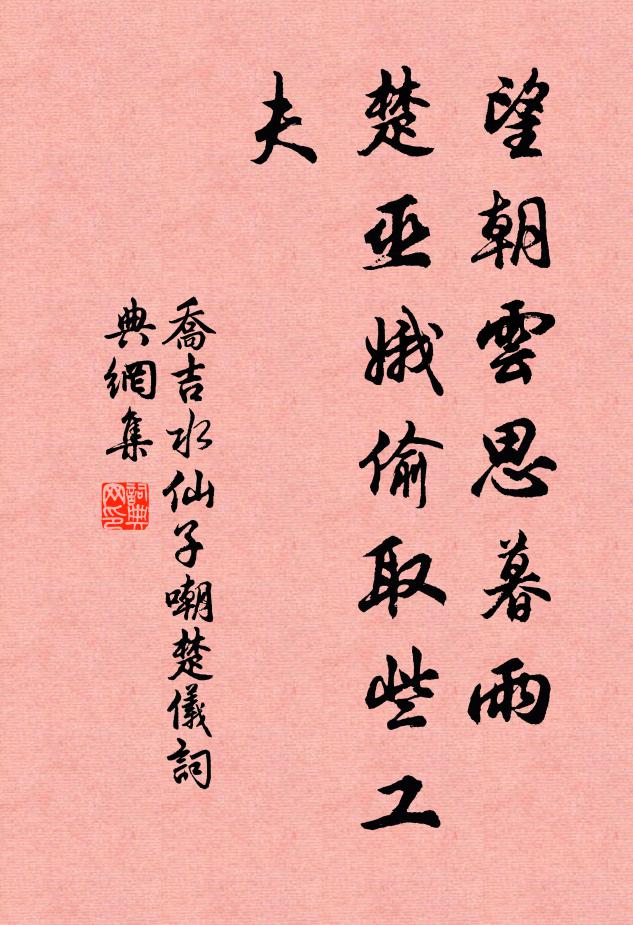 望朝雲思暮雨
楚巫娥偷取些工
夫
喬吉水仙子嘲楚儀詞
典網集
詞典
网印